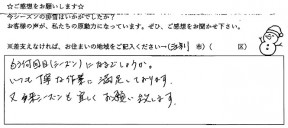 ☆ご感想をお願いします☆
今シーズンの掃雪はいかがでしたか?
お客様の声が、私たちの原動力になっています。ぜひ、ご感想をお聞かせ下さい。
※差支えなければ、お住まいの地域をご記入ください→( 市)( 区)
もう何回目(シーズン)になるでしょうか。
いつも丁寧な作業に満足しております。
又来シーズンも宜しくお願い致します。